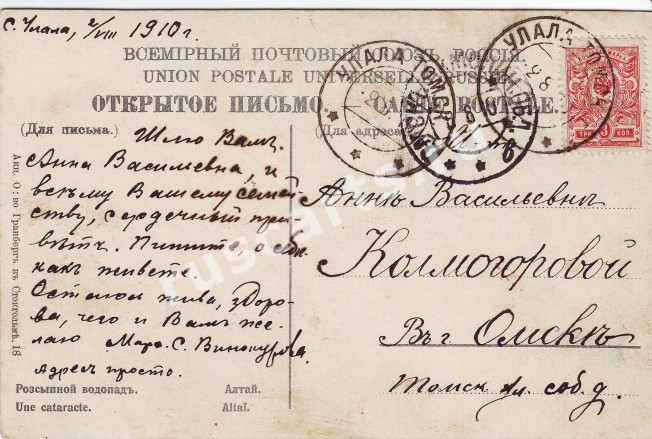 с. Улала, 2/VIII 1910 г.
ВСЕМІРНЫЙ ПОЧТОВЫЙ СОЮЗЪ. РОССІЯ.
UNION POSTALE UNIVERSELLE. RUSSIE.
ОТКРЫТОЕ ПИСЬМО. CARTE POSTALE.
УЛАЛА ТОМСК.
УЛАЛА ТОМСК.
МОСКВА
ТРИ 3 КОП
(Для письма.)
(Для адреса.)
Шлю Вамъ,
Анна Васильевна, и
всему Вашему семей
ству, сердечный при
вѣтъ. Пишите, о себѣ
какъ живете.
Остаюсь жива, здоро-
ва, чего и Вамъ же-
лаю Мар. С. Винокурова.
Адресъ просто.
Аннѣ Васильевнѣ
Колмогоровой
Въ г. Омскъ
Томск
Акц. О-во Гранбергъ въ Стокгольмѣ. 18
Розсыпной водопадъ. Алтай.
Une cataracte. Altaï.